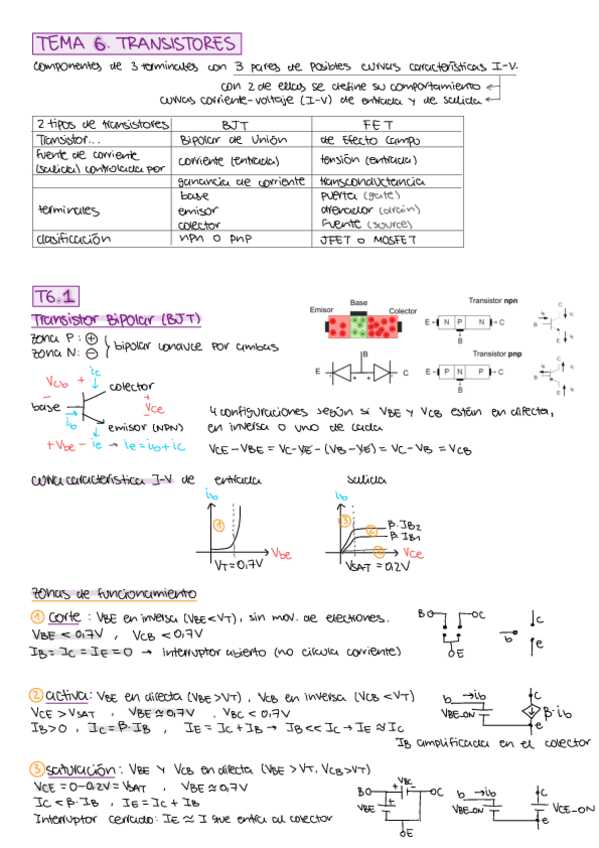 TEMA 6. TRANSISTORES
componentes de 3 terminales con 3 pares de posibles curvas características I-V.
con 2 de ellas se define su comportamiento
curvas corriente-voltaje (I-V) de entrada y de salida
2 tipos de transistores BJT FET
Transistor... Bipolar de Unión de Efecto Campo
fuente de corriente (salida) controlada por corriente (entrada) tensión (entrada)
ganancia de corriente transconductancia
terminales
base puerta (gate)
emisor drenador (drain)
colector fuente (source)
clasificación npn o pnp JFET o MOSFET
T6.1
Transistor Bipolar (BJT)
zona P: +
zona N: -
bipolar conduce por ambas
Emisor Base Colector
Transistor npn
E N P N C
B
C
B
E
E B C
Transistor pnp
E P N P C
B
C
B
E
Vcb + ic colector
-
base + Vce
ib -
emisor (NPN)
+ Vbe - ie → Ie = ib + ic
4 configuraciones según si VBE y VCB están en directa,
en inversa o uno de cada
VCE - VBE = VC - VE - (VB - VE) = VC - VB = VCB
curva característica I-V de entrada salida
ib
1
Vbe
VT = 0,7V
ib
3 2 β·IB2
β·IB1
1
Vce
VSAT = 0,2V
zonas de funcionamiento
1 corte: VBE en inversa (VBE < VT), sin mov. de electrones.
VBE < 0,7V , VCB < 0,7V
IB = IC = IE = 0 → interruptor abierto (no circula corriente)
BO OC
OE
c
b
e
2 activa: VBE en directa (VBE > VT), VCB en inversa (VCB < VT)
VCE > VSAT , VBE ≈ 0,7V , VBC < 0,7V
IB > 0 , IC = β·IB , IE = IC + IB → IB << IC → IE ≈ IC
IB amplificada en el colector
b → ib c
VBE_ON β·ib
e
3 saturación: VBE y VCB en directa (VBE > VT, VCB > VT)
VCE = 0-0,2V = VSAT , VBE ≈ 0,7V
IC < β·IB , IE = IC + IB
Interruptor cerrado: IE ≈ I que entra al colector
BO VBC OC
VBE
OE
b → ib c
VBE_ON VCE_ON
e